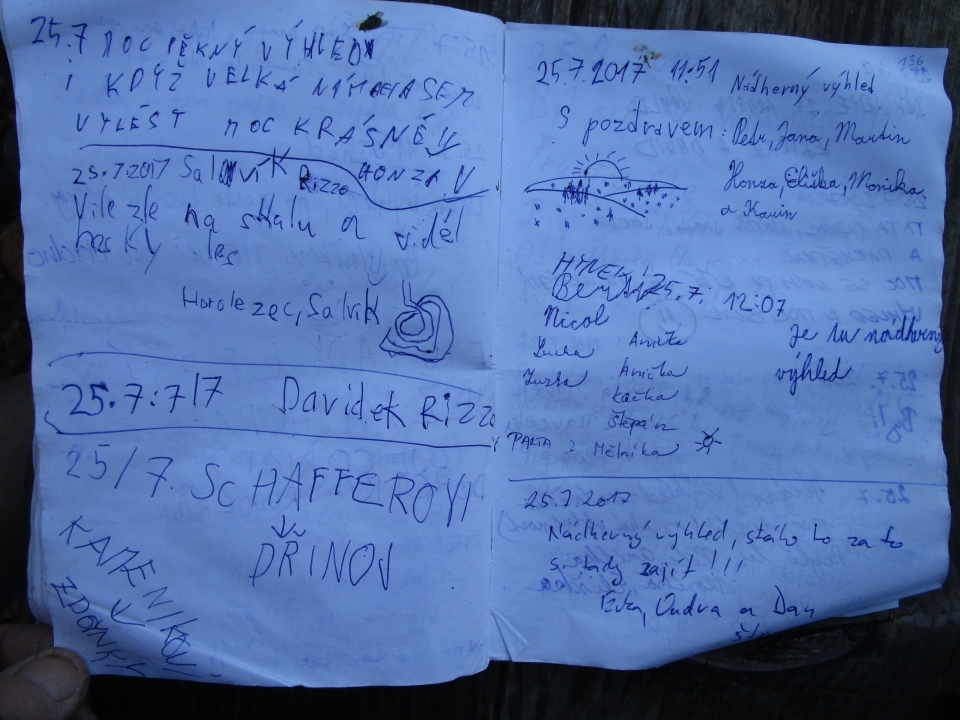 25.7 MOC PĚKNÝ VÝHLED
I KDYŽ VELKÁ NÁMAHA SEM
VYLÉST MOC KRÁSNĚ
25.7.2017 Salavík Rizzo HONZA V
Vile zle na skálu a viděl
hesky les
Horolezec, Salvik
25.7:717 Davidek Rizzo
25/7. SCHAFFEROVI
DŘINOV
KAMENÍKOVI
ZDONKY
136
25.7.2017 11:51 Nádherný výhled
S pozdravem: Petr, Jana, Martin
Honza, Eliška, Monika
a Karin
HYNEK
25.7. 12:07
Nicol
Je tu nádherný
výhled
Lucka Anička
Zuzka Anička
Kačka
Štěpán
PARTA z Mělníka
25.7.2017
Nádherný výhled, stálo to za to
si tady zajít!!!
Evka, Ondra a Dan